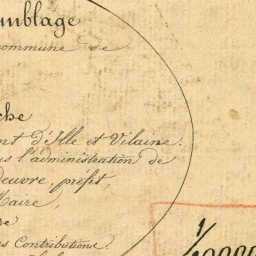 mblage
commune de
che
nt d'Ille et Vilaine.
us l'administration de
deuvre, préfet,
Maire,
re
s Contributions.
1/10000